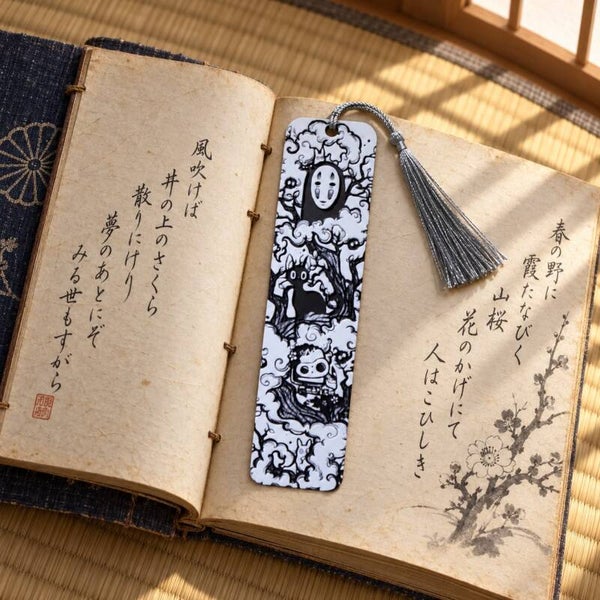 風吹けば
井の上のさくら
散りにけり
夢のあとにぞ
みる世もすがら
春の野に
霞たなびく
山桜
花のかげにて
人はこひしき